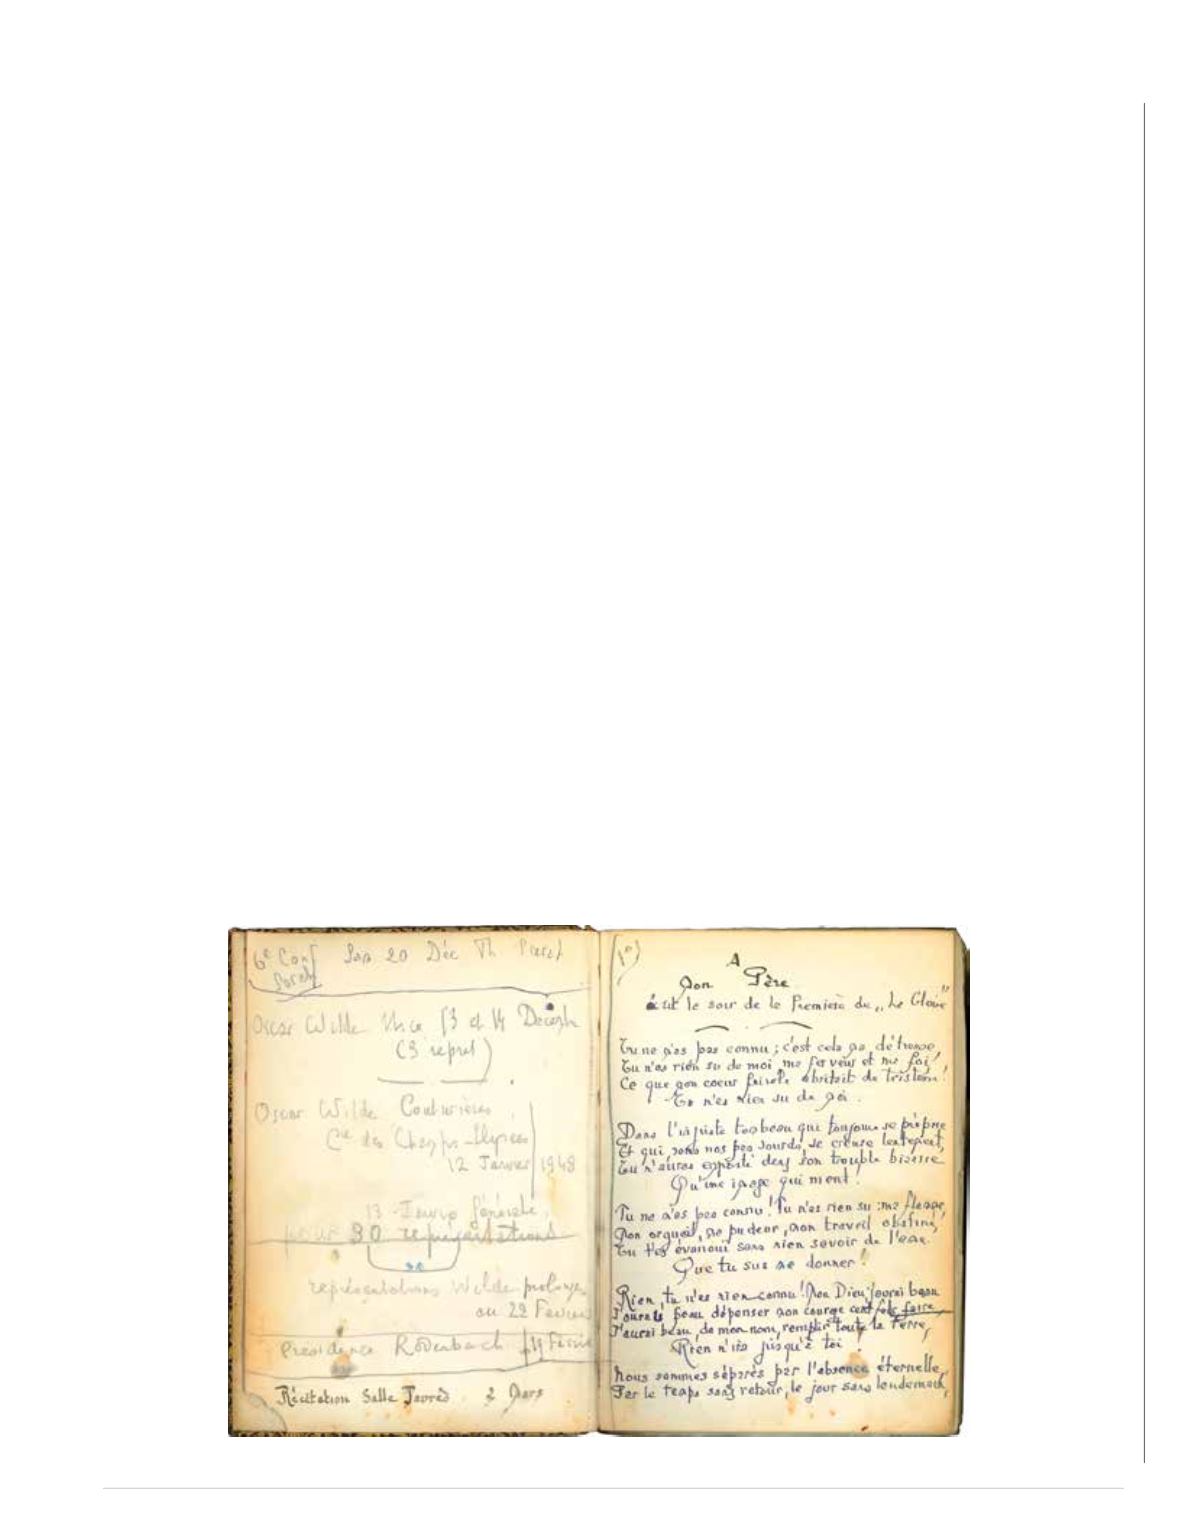 6e Conf
20 Déc Th
Oscar Wilde Nice 13 et 14 Décemb
(3 repret)
Oscar Wilde Couturières
Cie des Champs-Elysées
12 Janvier 1948
13 générale
pour 30 représentations
représentations Wilde prolongées
au 22 Février
Présidence Rodenbach
Récitation Salle 2 Mars
(1°)
A
Mon Père
écrit le soir de la Première du „Le Gloire"
Tu ne m'as pas connu ; c'est cela ma détresse,
Tu n'as rien su de moi, ma ferveur et ma foi,
Ce que mon coeur abritait de tristesse !
Tu n'as rien su de moi.
Dans l'injuste tombeau qui toujours se prépare
Et qui sous nos pas sourds, se creuse lentement,
Tu n'auras emporté dans ton trouble bizarre
Qu'une image qui ment !
Tu ne m'as pas connu ! Tu n'as rien su : ma flamme,
Mon orgueil, ma pudeur, mon travail obstiné,
Tu t'es évanoui sans rien savoir de l'âme
Que tu sus me donner !
Rien, tu n'as rien connu ! Mon Dieu j'aurai beau
J'aurai beau dépenser mon courage cent fois faire,
J'aurai beau, de mon nom, remplir toute la Terre,
Rien n'ira jusqu'à toi
Nous sommes séparés par l'absence éternelle,
Par le temps sans retour, le jour sans lendemain,